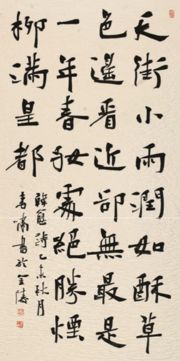 天街小雨潤如酥草
色遙看近卻無最是
一年春好處絕勝煙
柳滿皇都
韓愈詩乙未秋月
書於金陵